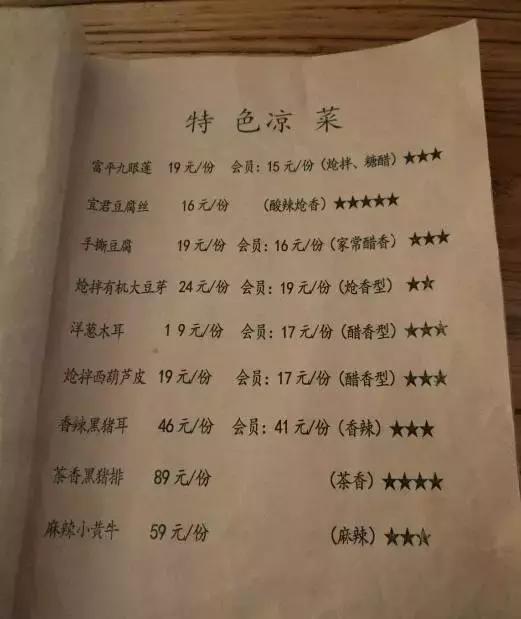 特色凉菜
富平九眼莲 19元/份 会员:15元/份(炝拌、糖醋)★★★
宜君豆腐丝 16元/份 (酸辣炝香)★★★★★
手撕豆腐 19元/份 会员:16元/份(家常醋香)★★★
炝拌有机大豆芽 24元/份 会员:19元/份(炝香型)★★
洋葱木耳 19元/份 会员:17元/份(醋香型)★★★
炝拌西葫芦皮 19元/份 会员:17元/份(醋香型)★★★
香辣黑猪耳 46元/份 会员:41元/份(香辣)★★★
茶香黑猪排 89元/份 (茶香)★★★★
麻辣小黄牛 59元/份 (麻辣)★★★